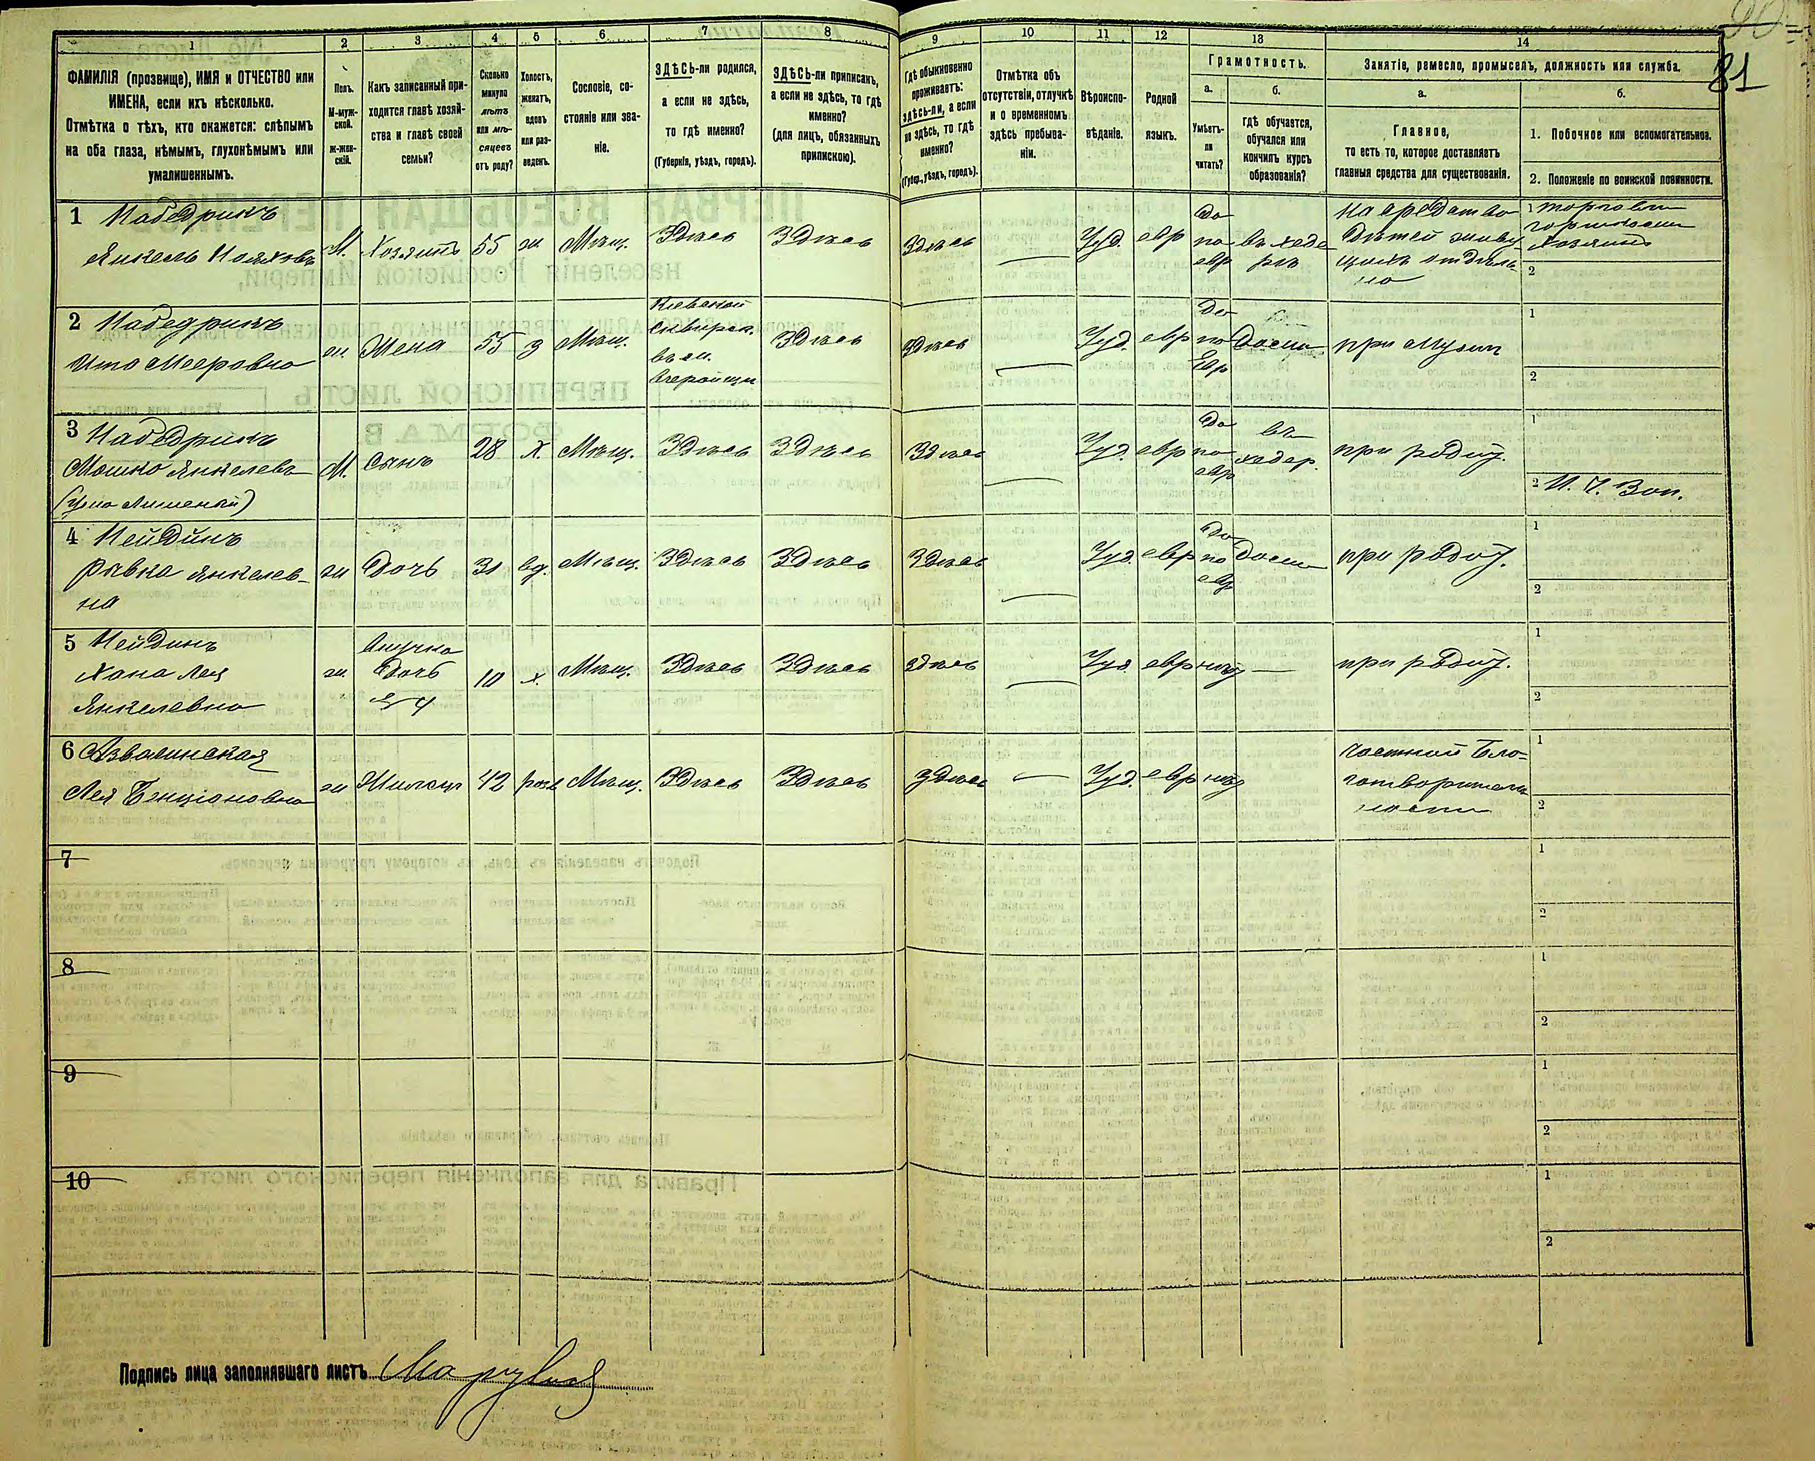 81
1 2 3 4 5 6 7 8 9 10 11 12 13 14
ФАМИЛІЯ (прозвище), ИМЯ и ОТЧЕСТВО или
ИМЕНА, если ихъ нѣсколько.
Отмѣтка о тѣхъ, кто окажется: слѣпымъ
на оба глаза, нѣмымъ, глухонѣмымъ или
умалишеннымъ.
Полъ.
М-муж-
ской.
ж-жен-
скій.
Какъ записанный при-
ходится главѣ хозяй-
ства и главѣ своей
семьи?
Сколько
минуло
лѣтъ
или мѣ-
сяцевъ
отъ роду?
Холостъ,
женатъ,
вдовъ
или раз-
веденъ.
Сословіе, со-
стояніе или зва-
ніе.
ЗДѢСЬ-ли родился,
а если не здѣсь,
то гдѣ именно?
(Губернія, уѣздъ, городъ).
ЗДѢСЬ-ли приписанъ,
а если не здѣсь, то гдѣ
именно?
(для лицъ, обязанныхъ
припискою).
Гдѣ обыкновенно
проживаетъ:
здѣсь-ли, а если
не здѣсь, то гдѣ
именно?
(Губер., уѣздъ, городъ).
Отмѣтка объ
отсутствіи, отлучкѣ
и о временномъ
здѣсь пребыва-
ніи.
Вѣроиспо-
вѣданіе.
Родной
языкъ.
Грамотность.
а.
Умѣетъ-
ли
читать?
б.
гдѣ обучается,
обучался или
кончилъ курсъ
образованія?
Занятіе, ремесло, промыселъ, должность или служба.
а.
Главное,
то есть то, которое доставляетъ
главныя средства для существованія.
б.
1. Побочное или вспомогательное.
2. Положеніе по воинской повинности.
1
Янкель
М. Хозяинъ 55 ж Мѣщ. Здѣсь Здѣсь Здѣсь — Іуд. евр
Да
по
евр
въ хеде
рѣ
на средства
дѣтей живу
щихъ отдѣль-
но
1 торговли
хозяинъ
2
2
Ита Мееровна
ж. Жена 55 з Мѣщ.
Кіевской
Здѣсь Здѣсь — Іуд. евр
Да
по
Евр
Дома при мужѣ
1
2
3
Мошко Янкелевъ
М. Сынъ 28 х. Мѣщ. Здѣсь Здѣсь Здѣсь — Іуд. евр
Да
по
евр
въ
хедер.
при родит.
1
2
4 Нейдинъ
Ривка Янкелев-
на
ж Дочь 31 вд. Мѣщ. Здѣсь Здѣсь Здѣсь — Іуд. евр
Да
по
евр
Дома при родит.
1
2
5 Нейдинъ
Хана Лея
Янкелевна
ж.
Внучка
Дочь
№ 4
10 х. Мѣщ. Здѣсь Здѣсь здѣсь — Іуд евр нѣтъ — при родит.
1
2
6
Лея Бенціоновна
ж Жилица 42 разв Мѣщ. Здѣсь Здѣсь здѣсь — Іуд. евр нѣтъ
частной бла-
готворитель
ности
1
2
7
1
2
8
1
2
9
1
2
10
1
2
Подпись лица заполнявшаго листъ